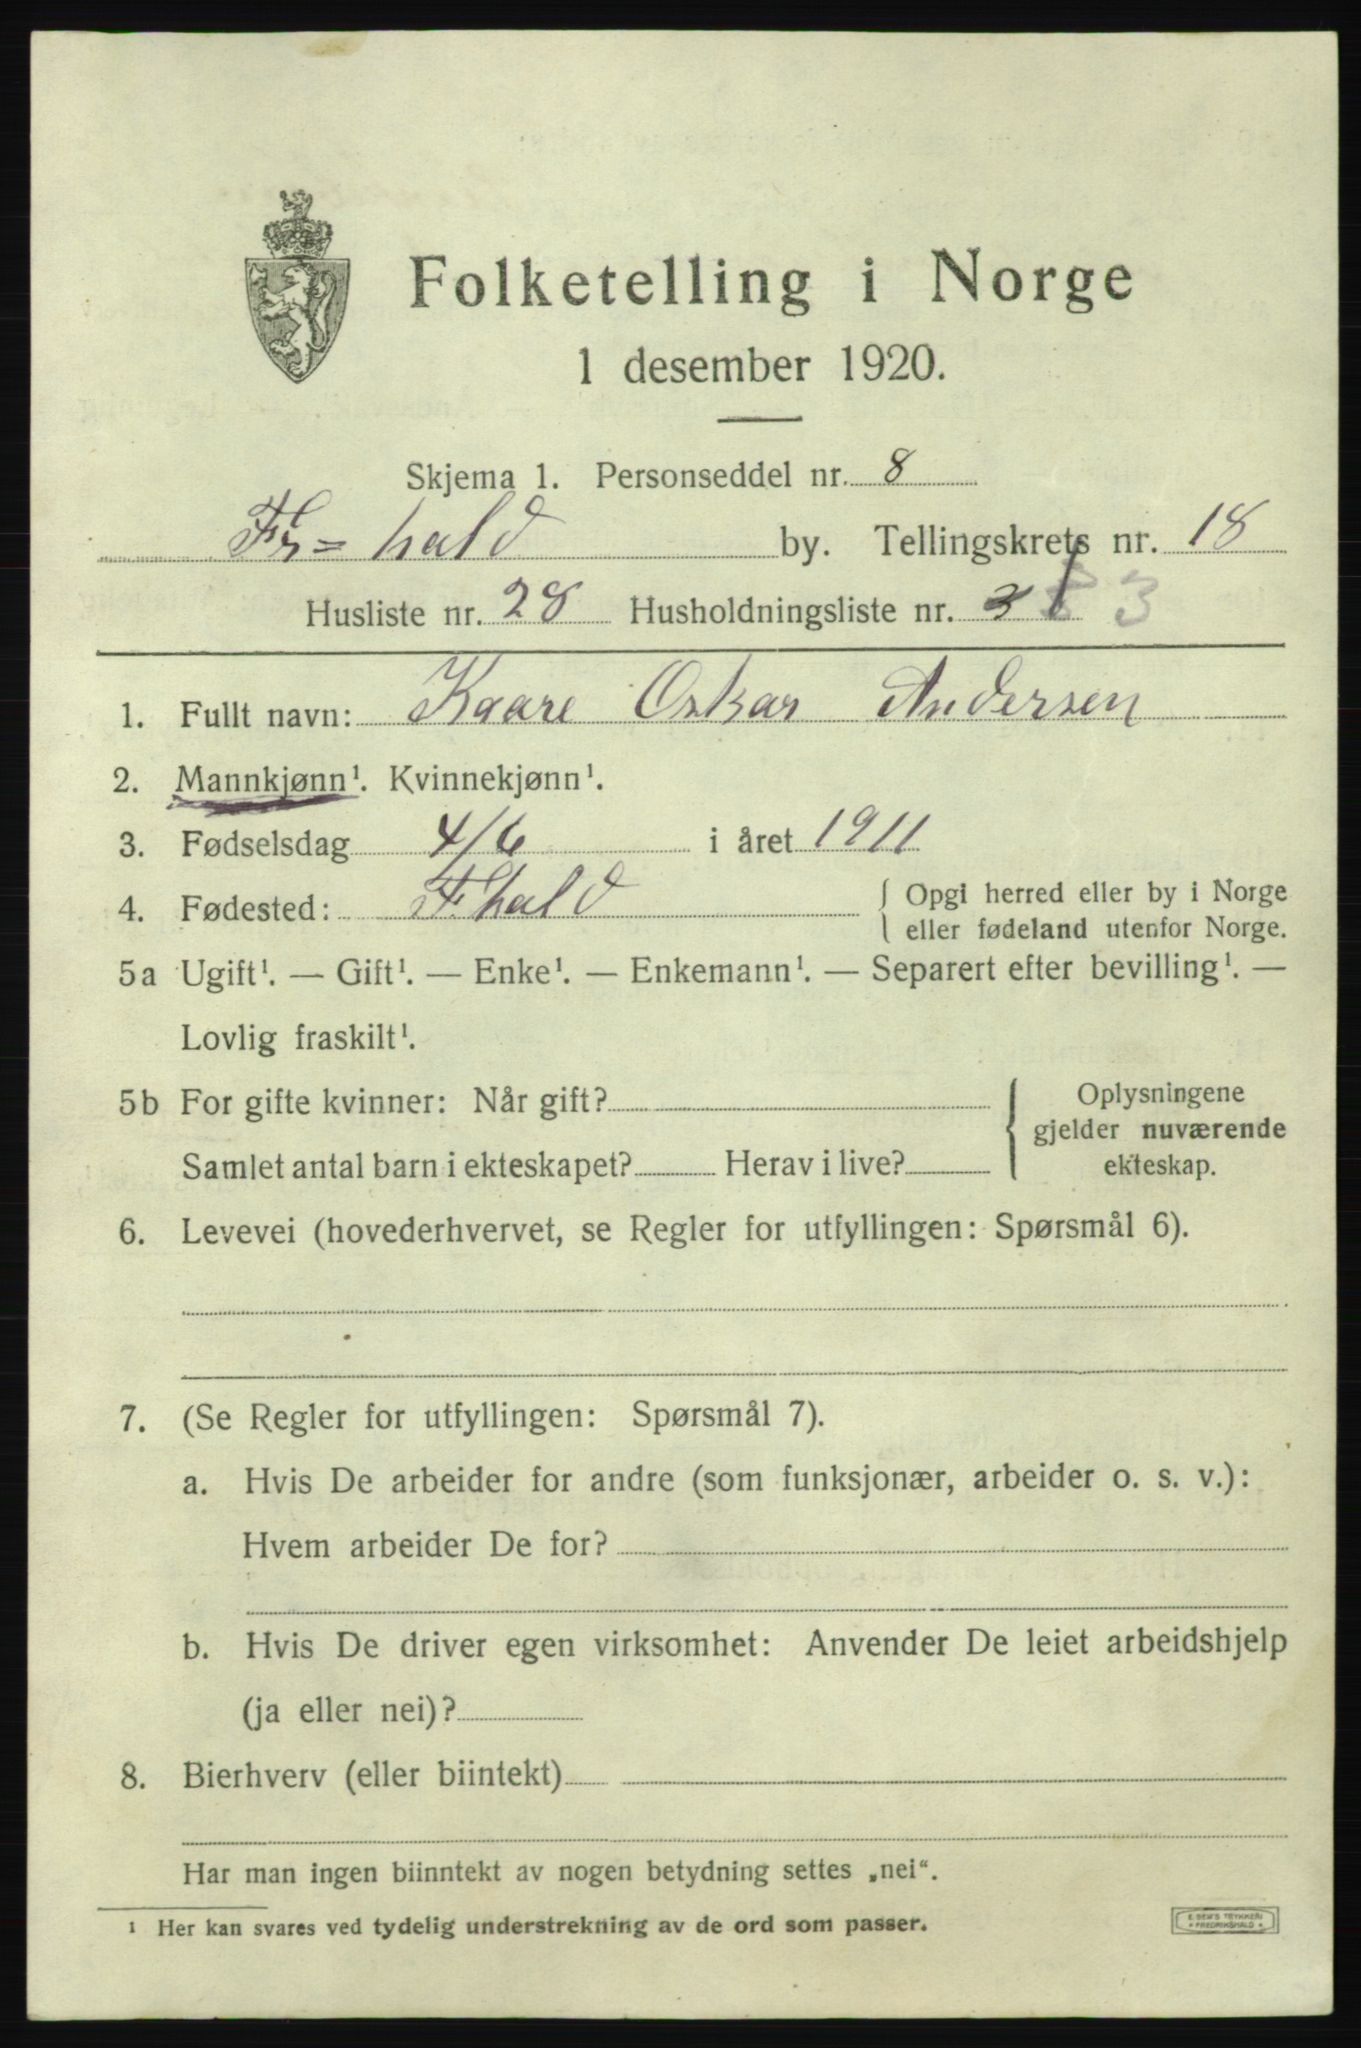 Folketelling i Norge
1 desember 1920.
Skjema 1. Personseddel nr. 8
Fr=hald by. Tellingskrets nr. 18
Husliste nr. 28 Husholdningsliste nr. 3
1. Fullt navn: Kaare Oskar Andersen
2. Mannkjønn¹. Kvinnekjønn¹.
3. Fødselsdag 4/6 i året 1911
4. Fødested: F.hald { Opgi herred eller by i Norge
eller fødeland utenfor Norge.
5a Ugift¹. — Gift¹. — Enke¹. — Enkemann¹. — Separert efter bevilling¹. —
Lovlig fraskilt¹.
5b For gifte kvinner: Når gift? { Oplysningene
gjelder nuværende
Samlet antal barn i ekteskapet? Herav i live? ekteskap.
6. Levevei (hovederhvervet, se Regler for utfyllingen: Spørsmål 6).
7. (Se Regler for utfyllingen: Spørsmål 7).
a. Hvis De arbeider for andre (som funksjonær, arbeider o. s. v.):
Hvem arbeider De for?
b. Hvis De driver egen virksomhet: Anvender De leiet arbeidshjelp
(ja eller nei)?
8. Bierhverv (eller biintekt)
Har man ingen biinntekt av nogen betydning settes „nei“.
1 Her kan svares ved tydelig understrekning av de ord som passer.
E SEM'S TRYKKERI
* FREDRIKSHALD *